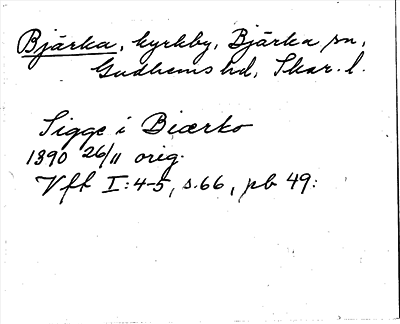 Bjärka, kyrkby, Bjärka sn,
Gudhems hd, Skar. l.
Sigge i Biærko
1390 26/11 orig.
Vft I:4-5, s.66, pb 49: